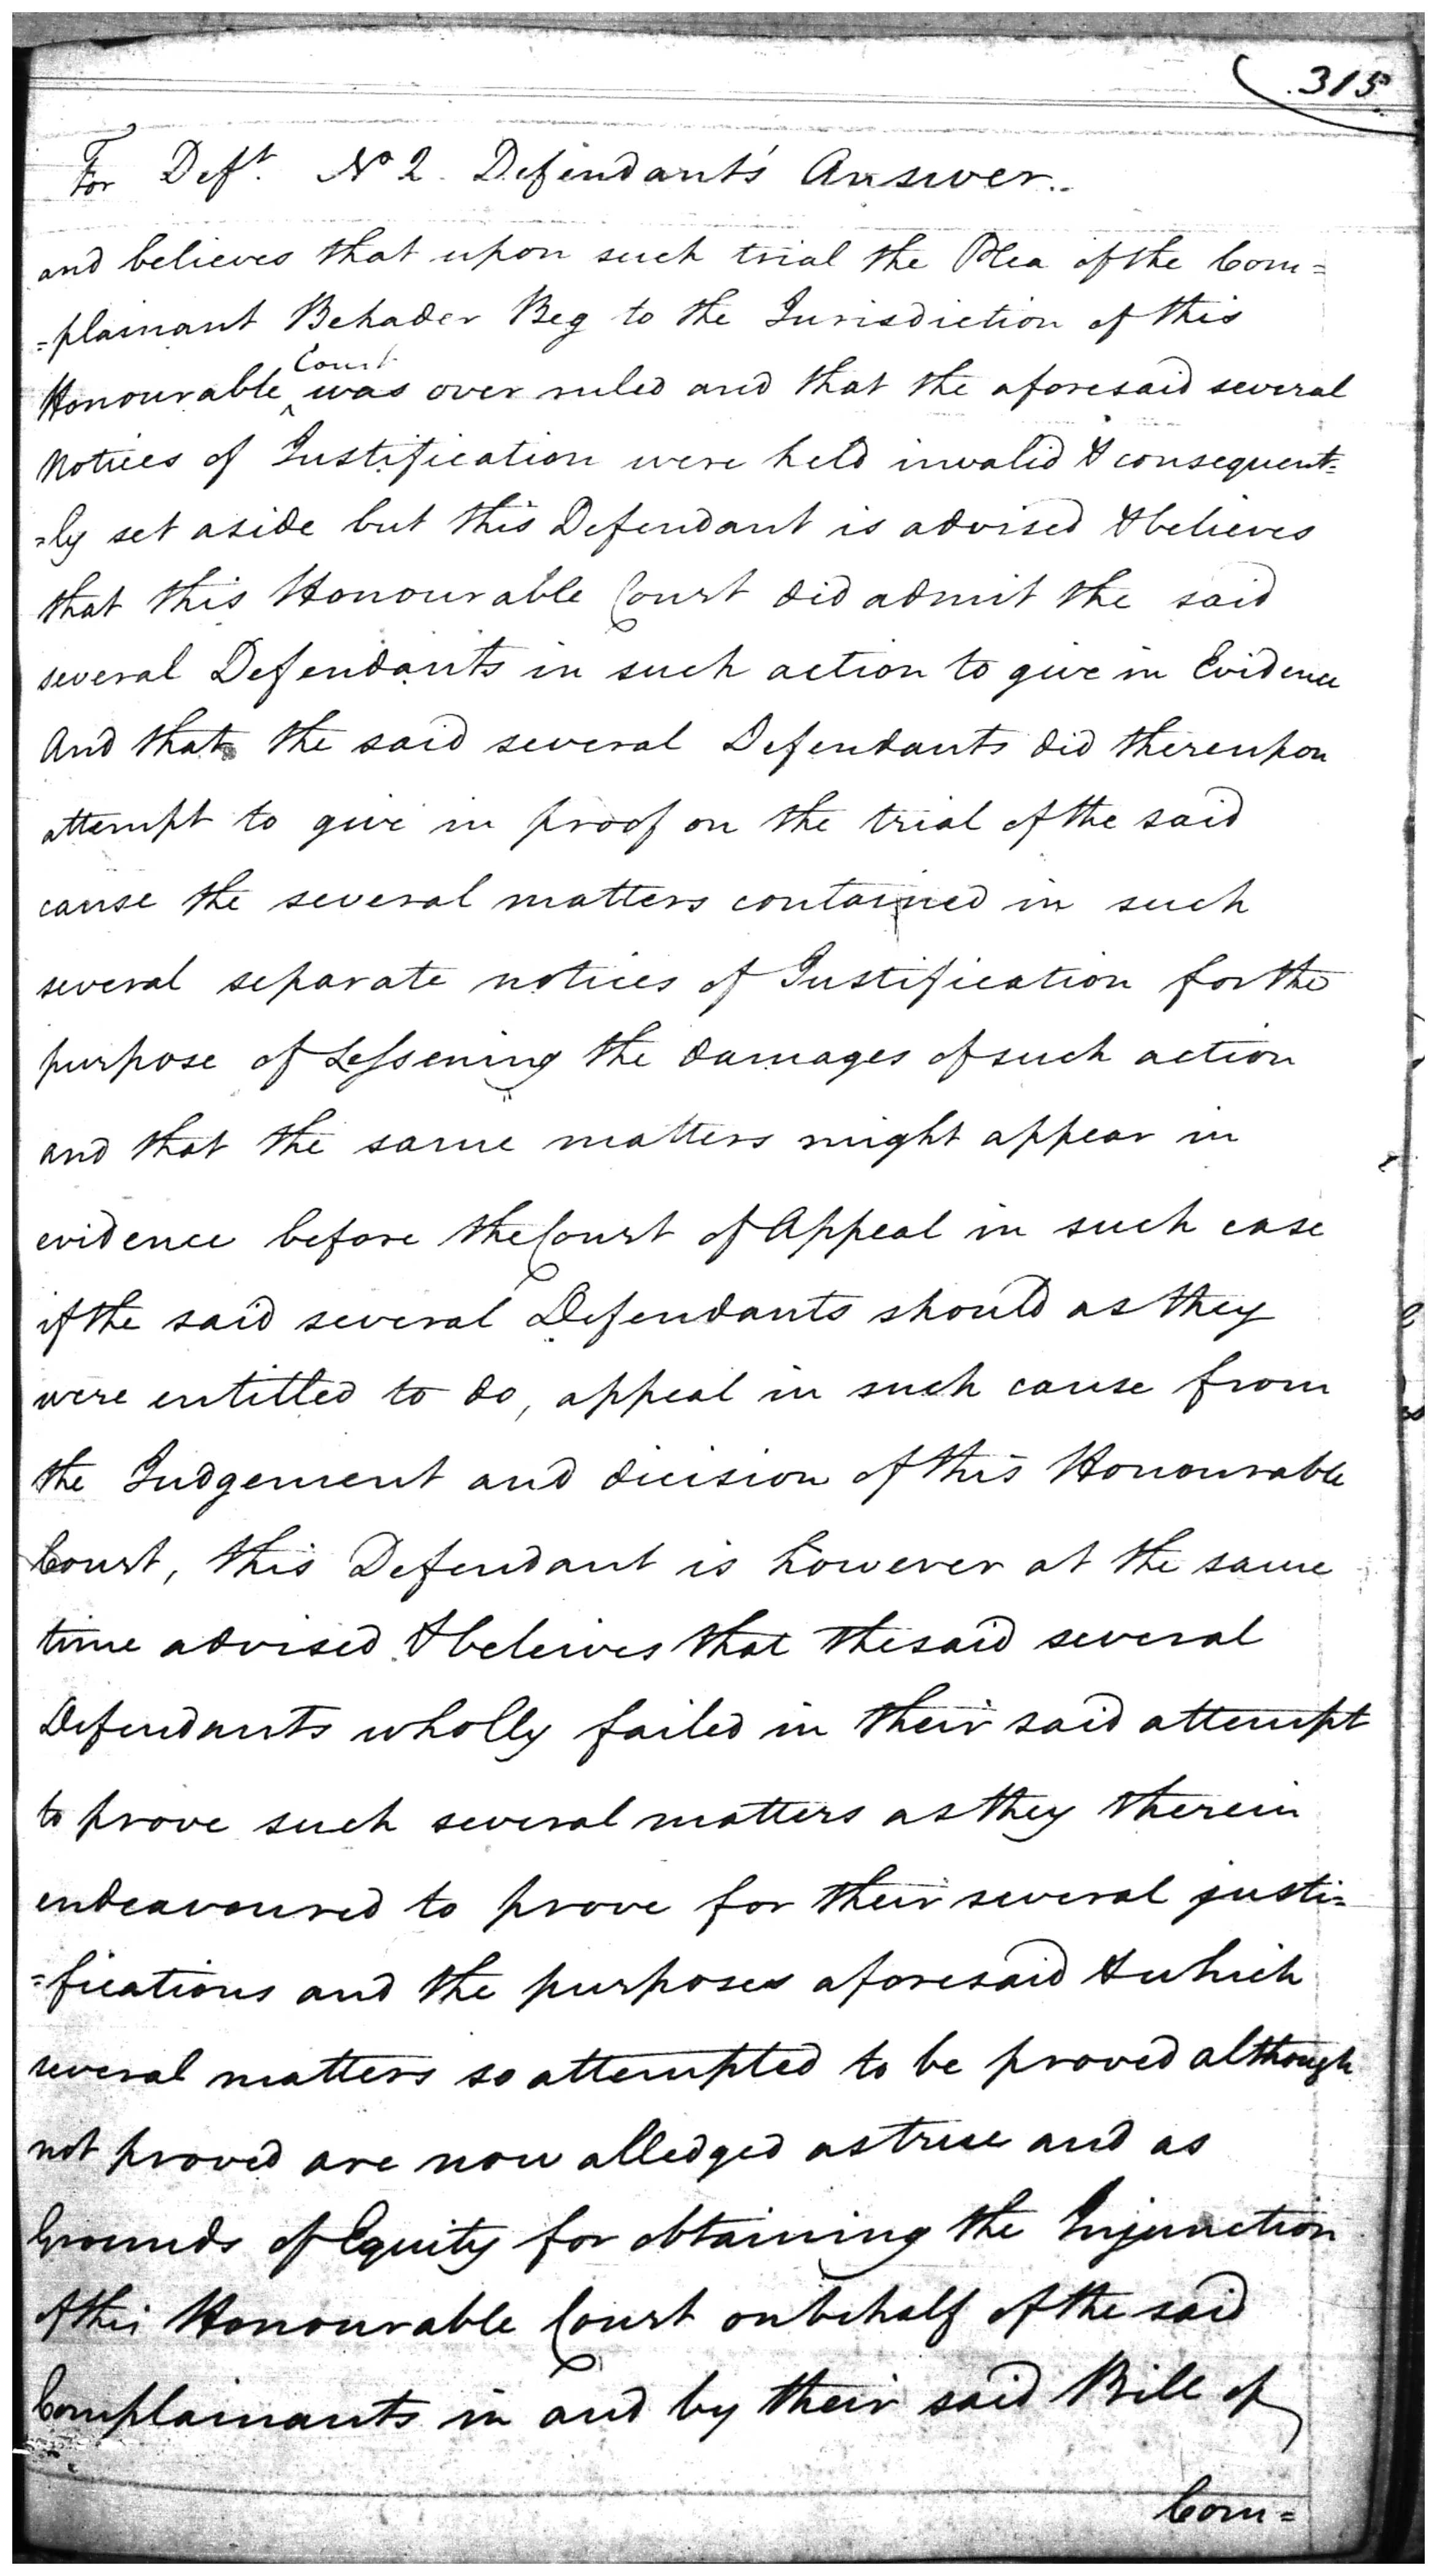 315.
For Deft. No 2. Defendant's Answer..
and believes that upon such trial the Plea of the Com=
=plainant Behader Beg to the Jurisdiction of this
Honourable ^Court was over ruled and that the aforesaid several
Notices of Justification were held invalid & consequent=
=ly set aside but this Defendant is advised & believes
that this Honourable Court did admit the said
several Defendants in such action to give in Evidence
And that the said several Defendants did thereupon
attempt to give in proof on the trial of the said
cause the several matters contained in such
several separate notices of Justification for the
purpose of Lessening the damages of such action
and that the same matters might appear in
evidence before the Court of Appeal in such case
if the said several Defendants should as they
were entitled to do, appeal in such cause from
the Judgement and dicision of this Honourable
Court, this Defendant is however at the same
time advised & beleives that the said several
Defendants wholly failed in their said attempt
to prove such several matters as they therein
endeavoured to prove for their several justi=
=fications and the purposes aforesaid & which
several matters so attempted to be proved although
not proved are now alledged as true and as
Grounds of Equity for obtaining the Injunction
of this Honourable Court on behalf of the said
Complainants in and by their said Bill of
Com=